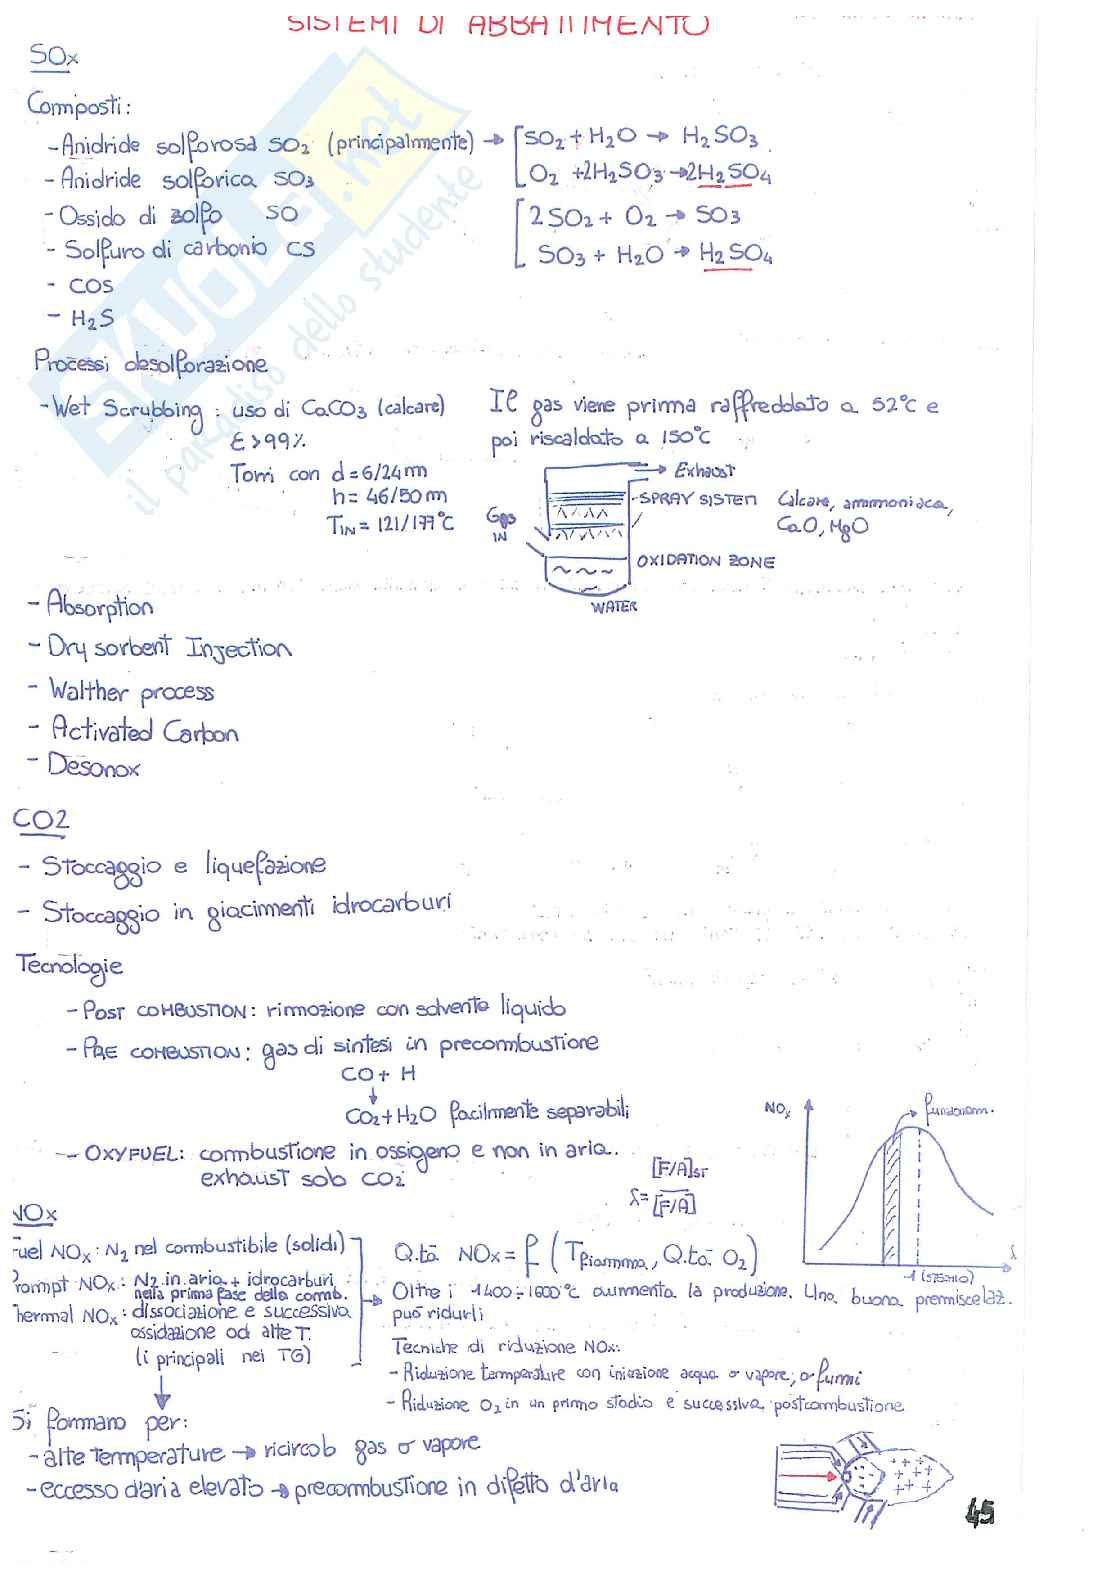 SISTEMI DI ABBATTIMENTO
SOx
Composti:
- Anidride solforosa SO2 (principalmente) → [ SO2 + H2O → H2SO3
O2 + 2H2SO3 → 2H2SO4
- Anidride solforica SO3
- Ossido di zolfo SO [ 2SO2 + O2 → SO3
- Solfuro di carbonio CS SO3 + H2O → H2SO4
- COS
- H2S
SKUOLA.net
il paradiso dello studente
Processi desolforazione
- Wet Scrubbing: uso di CaCO3 (calcare)
ε > 99%
Torri con d = 6/24 m
h = 46/50 m
TIN = 121/177°C
Il gas viene prima raffreddato a 52°C e
poi riscaldato a 150°C
→ Exhaust
SPRAY SISTEM Calcare, ammoniaca,
CaO, MgO
Gas
IN
OXIDATION ZONE
WATER
- Absorption
- Dry sorbent Injection
- Walther process
- Activated Carbon
- Desonox
CO2
- Stoccaggio e liquefazione
- Stoccaggio in giacimenti idrocarburi
Tecnologie
- POST COMBUSTION: rimozione con solvente liquido
- PRE COMBUSTION: gas di sintesi in precombustione
CO + H
↓
CO2 + H2O facilmente separabili
- OXYFUEL: combustione in ossigeno e non in aria.
exhaust solo CO2
λ = [F/A]ST / [F/A]
NOx
funzionam.
λ
1 (STECHIO)
NOx
Fuel NOx: N2 nel combustibile (solidi)
Prompt NOx: N2 in aria + idrocarburi
nella prima fase della comb.
Thermal NOx: dissociazione e successiva
ossidazione ad alte T.
(i principali nei TG)
Q.tà NOx = f (Tfiamma, Q.tà O2)
→ Oltre i 1400÷1600°C aumenta la produzione. Una buona premiscelaz.
può ridurli
Tecniche di riduzione NOx:
- Riduzione temperature con iniezione acqua o vapore, o fumi
- Riduzione O2 in un primo stadio e successiva postcombustione
Si formano per:
- alte temperature → ricircolo gas o vapore
- eccesso d'aria elevato → precombustione in difetto d'aria
45